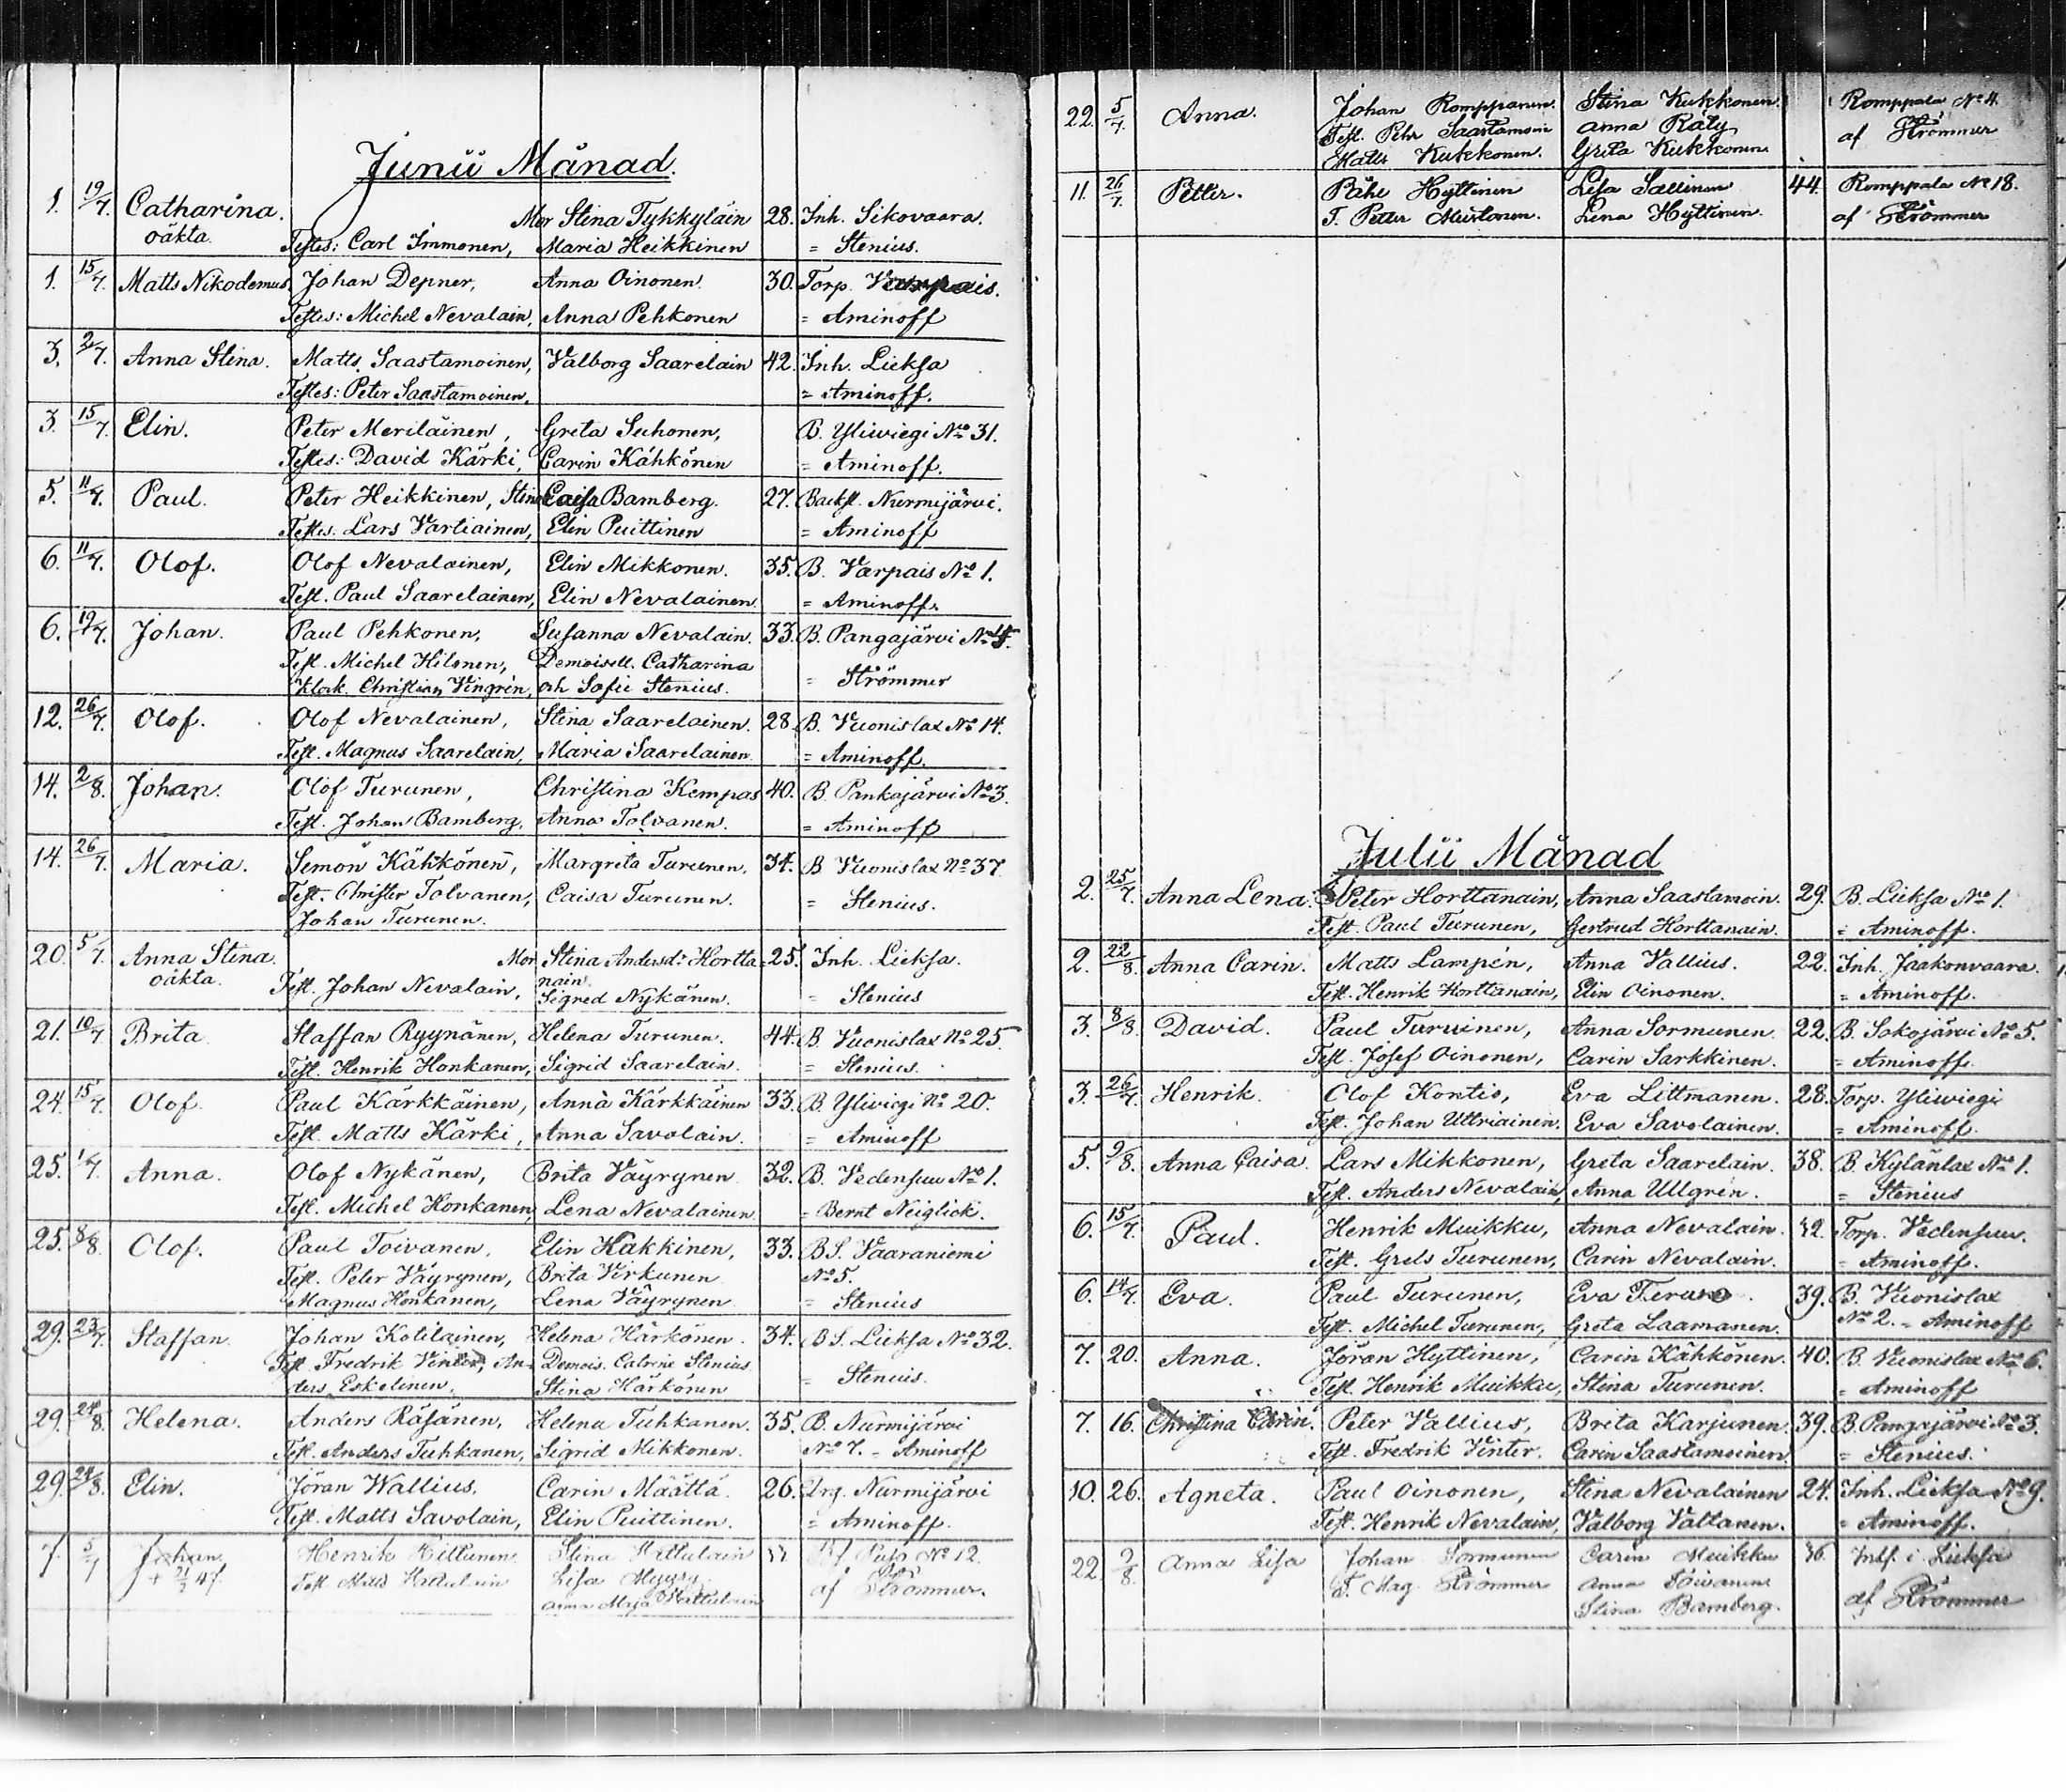 Junii Månad.
1. 19/7. Catharina. Mor Stina Tykkyläin 28. Inh. Sikovaara.
oäkta. Testes: Carl Immonen, Maria Heikkinen = Stenius.
1. 15/7. Matts Nikodemus, Johan Depner, Anna Oinonen. 30. Torp. Varpais.
Testes: Michel Nevalain, Anna Pehkonen = Aminoff
3. 2/7. Anna Stina. Matts Saastamoinen, Valborg Saarelain 42. Inh. Lieksa
Testes: Peter Saastamoinen, = Aminoff.
3. 15/7. Elin. Peter Meriläinen, Greta Suhonen, B. Yliwiegi No 31.
Testes: David Kärki, Carin Kähkönen = Aminoff.
5. 11/7. Paul. Peter Heikkinen, Stina Caisa Bamberg. 27. Backst. Nurmijärvi.
Testes. Lars Vartiainen, Elin Puittinen = Aminoff
6. 11/7. Olof. Olof Nevalainen, Elin Mikkonen. 35. B. Varpais No 1.
Test. Paul Saarelainen, Elin Nevalainen = Aminoff.
6. 19/7. Johan. Paul Pehkonen, Susanna Nevalain. 33. B. Pangajärvi No
Test. Michel Hilonen, Demoisell. Catharina
Klock. Christian Vingrén, och Sofie Stenius. = Strömmer
12. 26/7. Olof. Olof Nevalainen, Stina Saarelainen. 28. B. Vuonislax No 14.
Test. Magnus Saarelain, Maria Saarelainen = Aminoff.
14. 2/8. Johan. Olof Turunen, Christina Kempas 40. B. Pankajärvi No 3.
Test. Johan Bamberg, Anna Tolvanen. = Aminoff
14. 26/7. Maria. Semon Kähkönen, Margreta Turunen, 34. B. Vuonislax No 37
Test. Christer Tolvanen, Caisa Turunen. = Stenius.
Johan Turunen.
20. 5/7. Anna Stina. Mor Stina Andersdr Hortta= 25. Inh. Lieksa.
oäkta. nain
Test. Johan Nevalain, Sigred Nykänen. = Stenius
21. 10/7 Brita Staffan Ryynänen, Helena Turunen. 44. B. Vuonislax No 25.
Test. Henrik Honkanen, Sigrid Saarelain. = Stenius.
24. 15/7. Olof. Paul Kärkkäinen, Anna Kärkkäinen 33. B. Yliwiegi No 20.
Test. Matts Kärki, Anna Savolain. = Aminoff
25. 1/7. Anna. Olof Nykänen, Brita Väyrynen 32. B. Vedensuu No 1.
Test. Michel Honkanen, Lena Nevalainen = Bernt Neiglick.
25. 8/8. Olof. Paul Toivanen, Elin Kakkinen, 33. BS. Vaaraniemi
Test. Peter Väyrynen, Brita Virkunen No 5.
Magnus Honkanen, Lena Väyrynen = Stenius
29. 23/7. Staffan. Johan Kotilainen, Helena Härkönen. 34. BS. Lieksa No 32.
Test. Fredrik Vinter, An- Demois. Catrine Stenius
ders Eskelinen, Stina Härkönen = Stenius.
29. 24/8. Helena. Anders Räsänen, Helena Tuhkanen. 35. B. Nurmijärvi
Test. Anders Tuhkanen, Sigrid Mikkonen. No 7. = Aminoff
29. 24/8. Elin. Jöran Wallius, Carin Määttä. 26. Nurmijärvi
Test. Matts Savolain, Elin Puittinen. = Aminoff.
7. 5/7 Johan Henrik Hiltunen Stina 37 No 12.
+ 21/7 47. Test. Matts Lisa af Strömmer.
Anna Maja
22. 5/7. Anna. Johan Romppanen. Stina Kukkonen. Romppala No 4.
Test. Pehr Saastamoin Anna Räty af Strömmer
Matts Kukkonen. Greta Kukkonen
11. 26/7. Petter. Påhl Hyttinen Lisa Sallinen 44. Romppala No 18.
T. Petter Mustonen. Lena Hyttinen. af Strömmer
Julii Månad
2. 25/7. Anna Lena. Peter Horttanain, Anna Saastamoin. 29. B. Lieksa No 1.
Test. Paul Turunen, Gertrud Horttanain. = Aminoff.
2. 22/8. Anna Carin. Matts Lampén, Anna Vallius. 22. Inh. Jaakonvaara.
Test. Henrik Horttanain, Elin Oinonen. = Aminoff.
3. 8/8. David. Paul Turuinen, Anna Sormunen. 22. B. Sokojärvi No 5.
Test. Josef Oinonen, Carin Sarkkinen. = Aminoff.
3. 26/7. Henrik. Olof Kontio, Eva Littmanen. 28. Torp. Yliwiegi
Test. Johan Uttriainen. Eva Savolainen. = Aminoff.
5. 9/8. Anna Caisa. Lars Mikkonen, Greta Saarelain. 38. B. Kylänlax No 1.
Test. Anders Nevalain, Anna Ullgrén. = Stenius
6. 15/7. Paul. Henrik Muikku, Anna Nevalain. 42. Torp. Vedensuu.
Test. Grels Turunen, Carin Nevalain. = Aminoff.
6. 14/7. Eva. Paul Turunen, Eva 39. B. Vuonislax
Test. Michel Turunen, Greta Laamanen. No 2. = Aminoff
7. 20. Anna. Jöran Hyttinen, Carin Kähkönen. 40. B. Vuonislax No 6.
Test. Henrik Muikku, Stina Turunen. = Aminoff
7. 16. Christina Carin. Peter Vallius, Brita Karjunen. 39. B. Pangajärvi No 3.
Test. Fredrik Vinter. Carin Saastamoinen = Stenius.
10. 26. Agneta. Paul Oinonen, Stina Nevalainen 24. Inh. Lieksa No 9.
Test. Henrik Nevalain, Valborg Valtanen. = Aminoff.
22 2/8. Anna Lisa Johan Sormunen Carin Muikku 36. Inh. i Lieksa
T. Mag. Strömmer Anna Toivanen af Strömmer
Stina Bamberg.